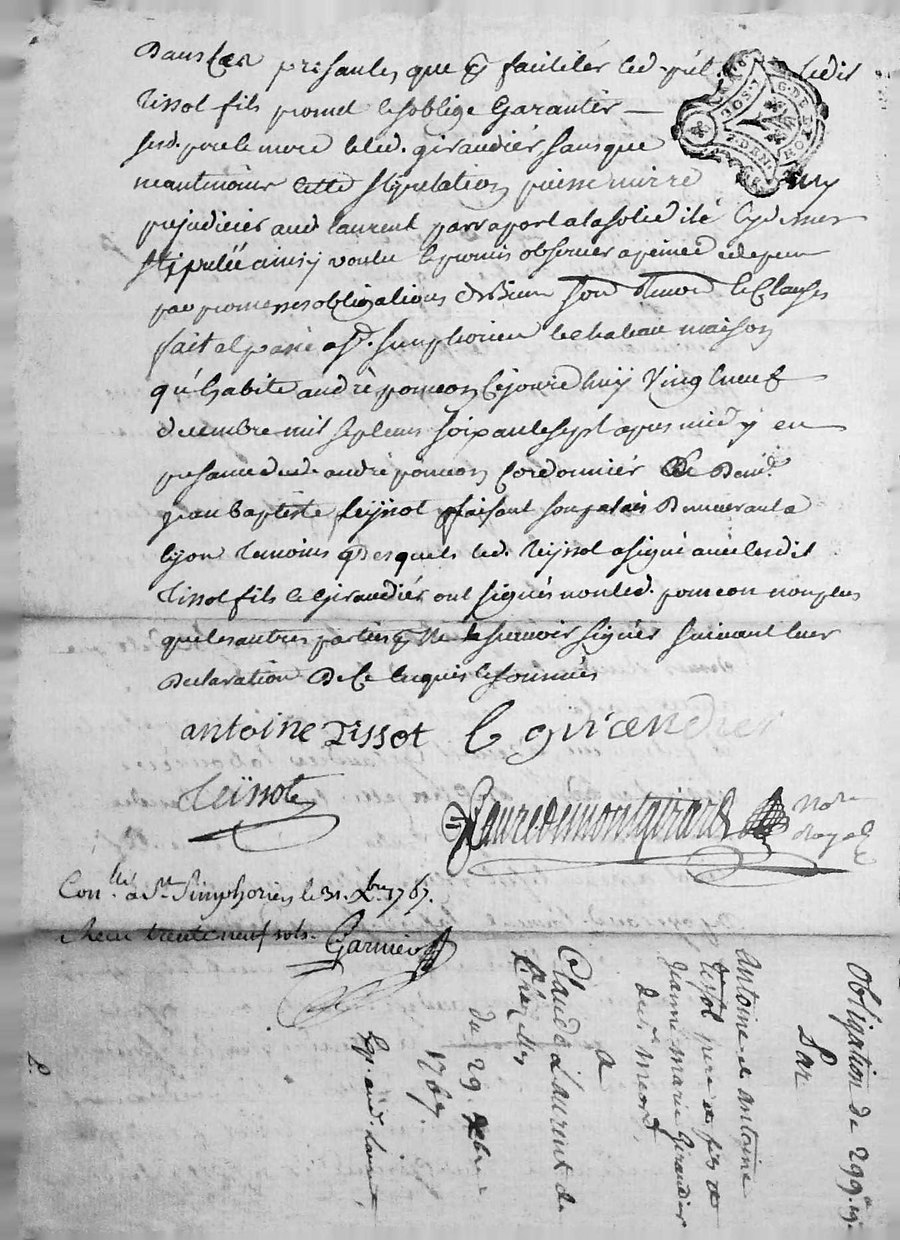 Dans ces presantes que pr faciliter led. ledit
Tissot fils promet et soblige Garantir
sesd. pere et mere et led. giraudier sans que
neantmoins cette stipulation puisse nuire ny
prejudicier aud laurent par raport a la solidité cy dessus
stipulée ainsy voulu et promis observer a peine
par promesses obligations soumod. et Clauses
fait et passé a st. simphorien le chateau maison
qu'habite andré poncon cejourd'huy Vingt neuf
decembre mil sept cens soixante sept apres midy en
presance dud. andré poncon Cordonnier et de
jean baptiste teyssot faisant son palais Demeurant a
lyon temoins desquels led. teyssot a signé avec lesdit
Tissot fils et Giraudier ont signés non led. poncon non plus
que les autres parties pr ne sçavoir signer suivant leur
Declaration De ce enquis et sommés
antoine Tissot C giraudier
Teissot
Lauredemontgirard Nore
Royal
Conllé à St. Simphorien le 31. Xbre 1767.
Reçu trente neuf sols. Garnier
Obligation de 299 ll 19 s
Par
Antoine & Antoine
tissot pere & fils &
Jeanne marie Giraudier
de st. medard,
a
Claude Laurent de
Chazelles
du 29. Xbre
1767.
Exp. aud. Laurent,